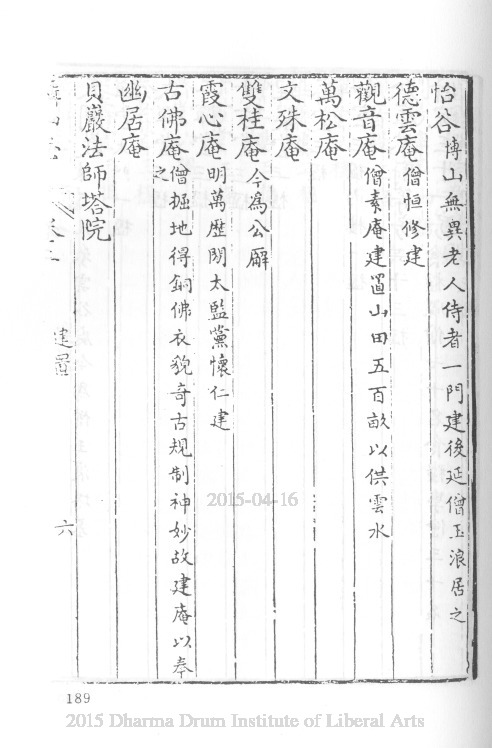 怡谷博山無異老人侍者一門建後延僧玉浪居之
德雲庵僧恒修建
觀音庵僧素庵建置山田五百畝以供雲水
萬松庵
文殊庵
雙桂庵今為公廨
霞心庵明萬歷閒太監黨懷仁建
古佛庵僧掘地得銅佛衣貌奇古規制神妙故建庵以奉
之
幽居庵
貝巖法師塔院
建置
六
189
2015-04-16
2015 Dharma Drum Institute of Liberal Arts